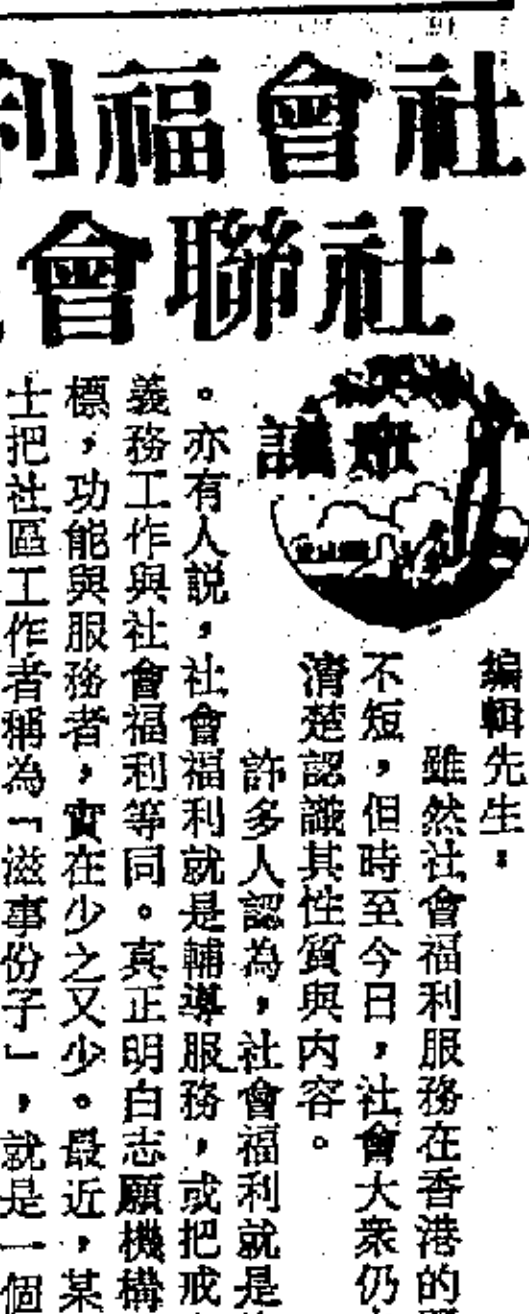 社會福利
社聯會
編輯先生：
雖然社會福利服務在香港的
不短，但時至今日，社會大衆仍
清楚認識其性質與内容。
許多人認為，社會福利就是
。亦有人説，社會福利就是輔導服務，或把戒
義務工作與社會福利等同。真正明白志願機構
標，功能與服務者，實在少之又少。最近，某
士把社區工作者稱為「滋事份子」，就是一個